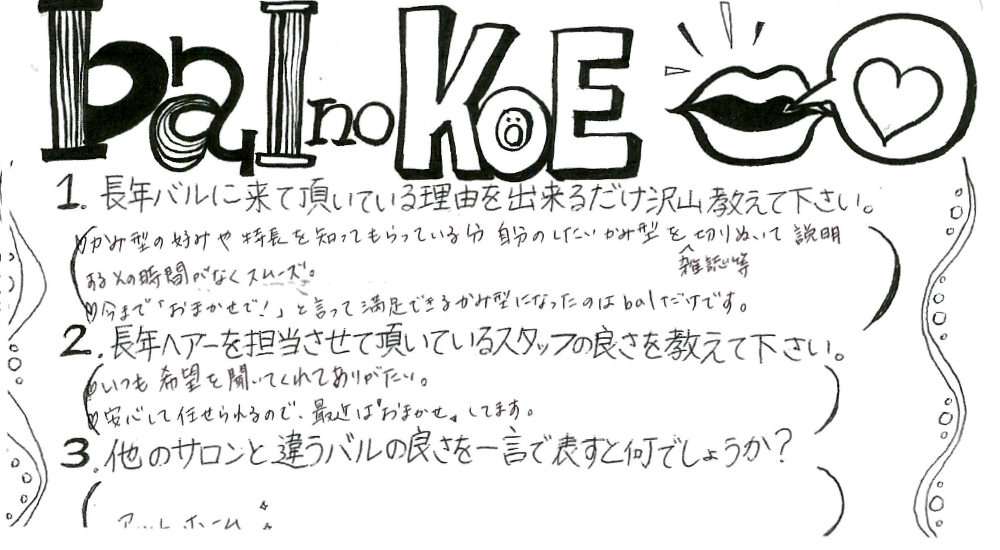 bal no KOE
1. 長年バルに来て頂いている理由を出来るだけ沢山教えて下さい。
かみ型の好みや特長を知ってもらっている分 自分のしたいかみ型を切りぬいて説明
雑誌等
するその時間がなくスムーズ。
今まで「おまかせで!」と言って満足できるかみ型になったのはbalだけです。
2. 長年ヘアーを担当させて頂いているスタッフの良さを教えて下さい。
いつも希望を聞いてくれてありがたい。
安心して任せられるので、最近は“おまかせ„してます。
3. 他のサロンと違うバルの良さを一言で表すと何でしょうか?
アットホーム